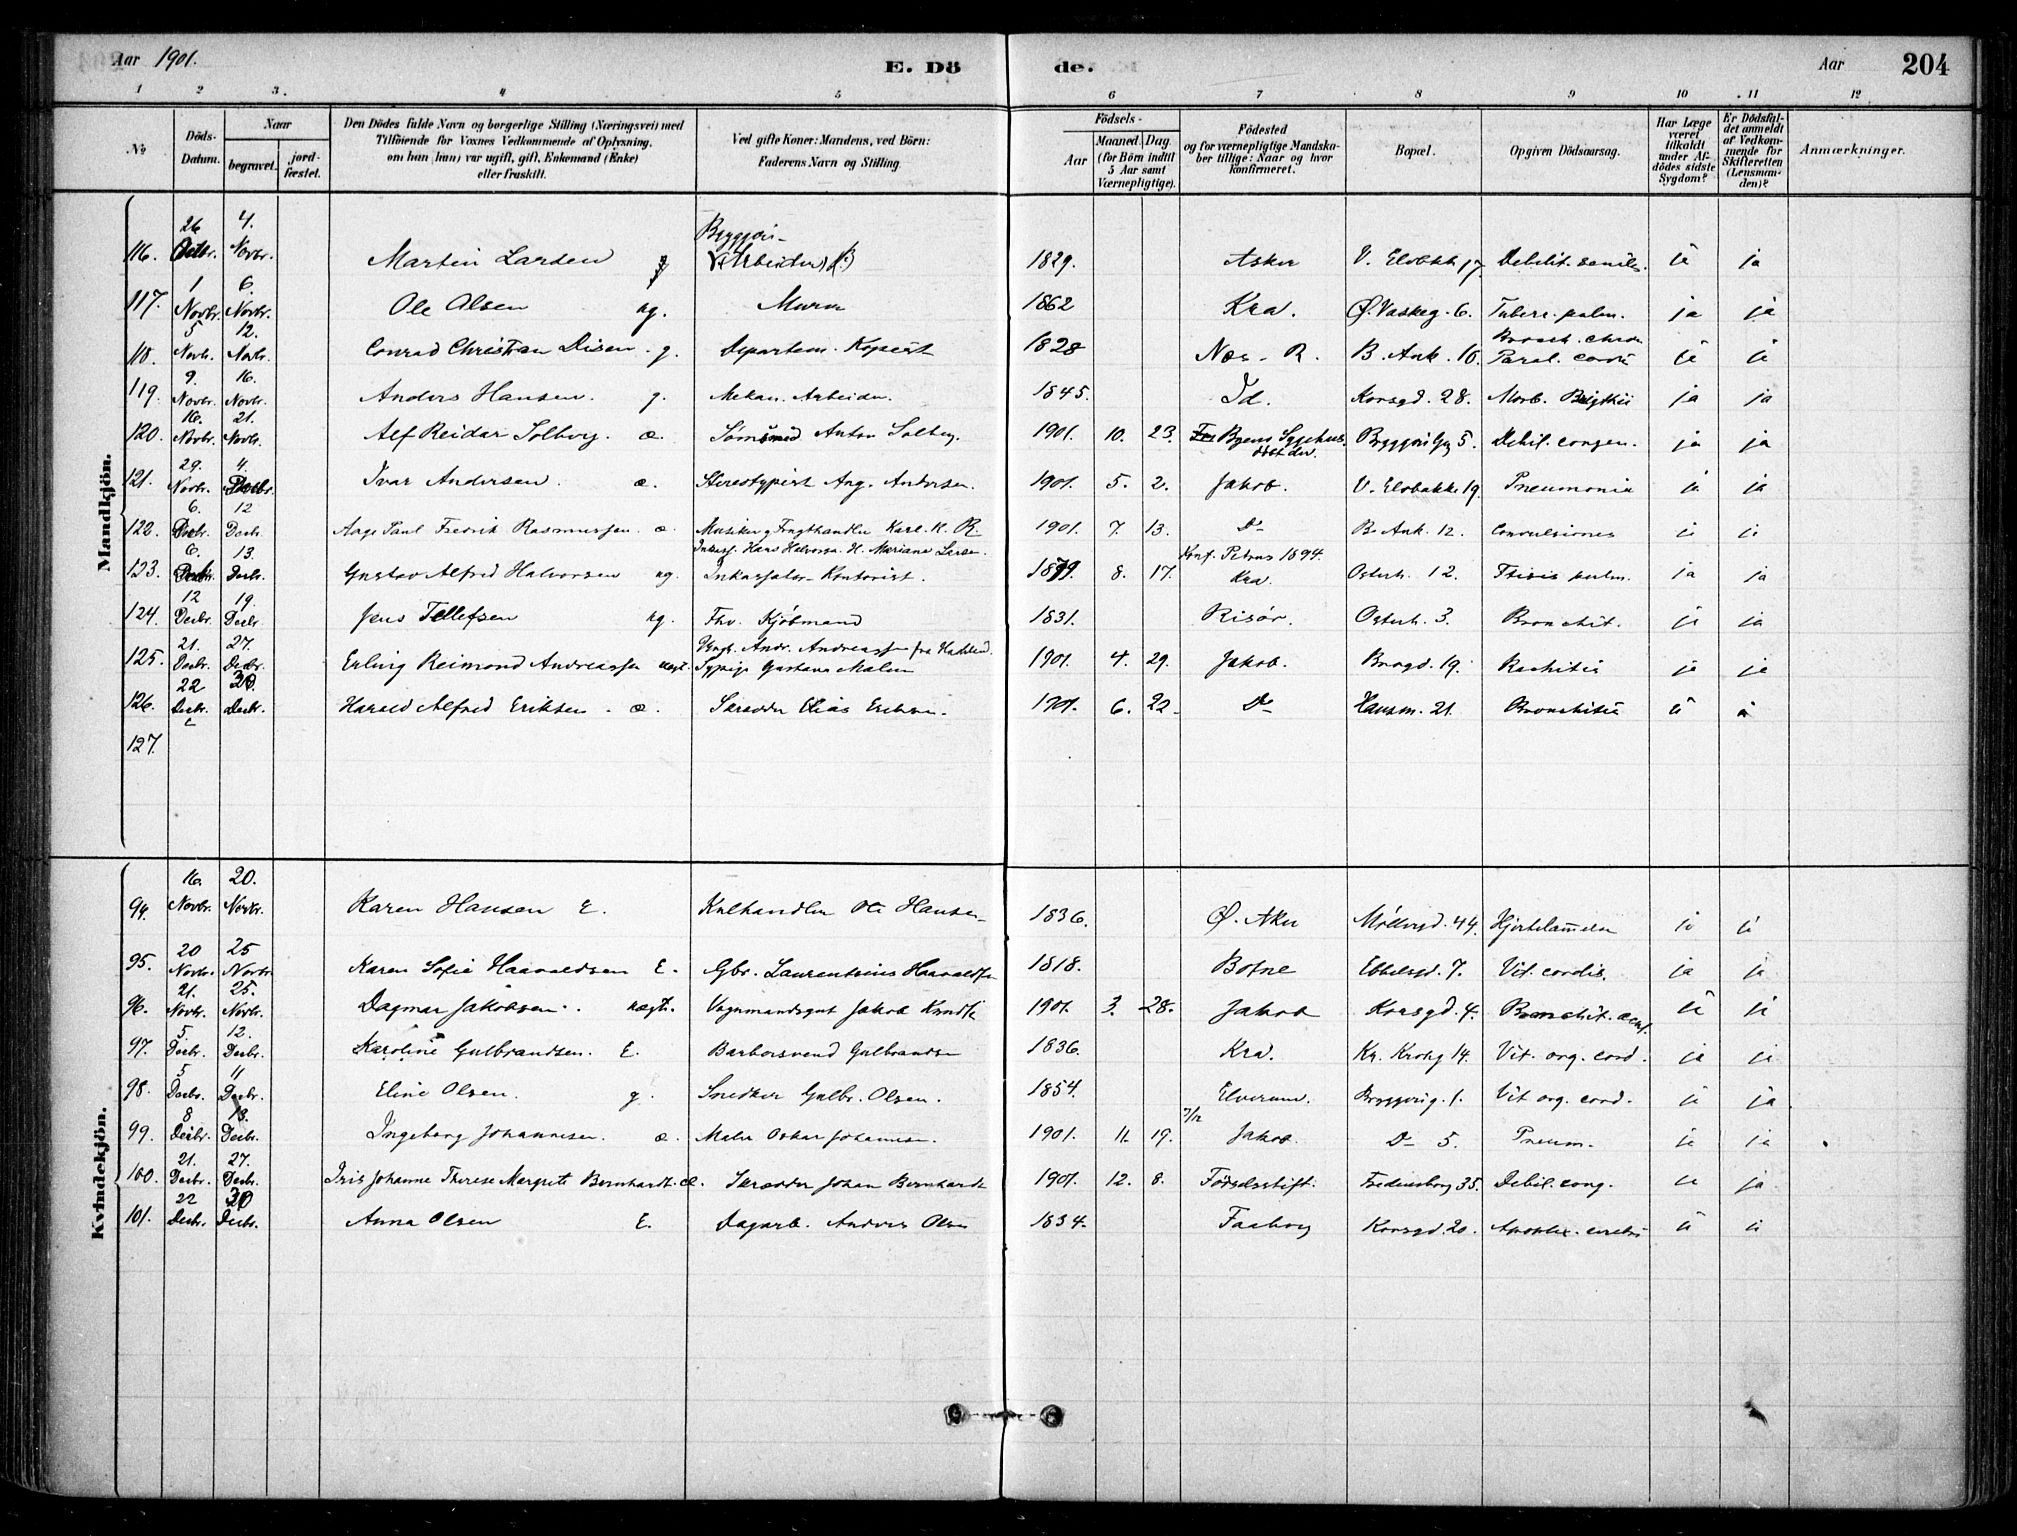 Aar 1901.
E. Dö
de.
Aar
204
1 2 3. 4 5 6 7 8 9 10 11 12
No
Döds-Datum.
Naar
begravet.
jord-fæstet.
Den Dödes fulde Navn og borgerlige Stilling (Næringsvei) med
Tilföiende for Voxnes Vedkommende af Oplysning,
om han (hun) var ugift, gift, Enkemand (Enke)
eller fraskilt.
Ved gifte Koner: Mandens, ved Börn:
Faderens Navn og Stilling.
Födsels-
Aar
Maaned. Dag.
(for Börn indtil
5 Aar samt
Værnepligtige).
Födested
og for værnepligtige Mandska-
ber tillige: Naar og hvor
konfirmeret.
Bopæl.
Opgiven Dödsaarsag.
Har Læge
været
tilkaldt
under Af-
dödes sidste
Sygdom?
Er Dödsfal-
det anmeldt
af Vedkom-
mende for
Skifteretten
(Lensman-
den)?
Anmærkninger.
Mandkjön.
116. 26 Octbr. 4. Novbr. Martin Larsen g Bryggeri-Arbeider 1829. Asker V. Elvbakk 17. Debilit. senilis. ja ja
117. 1 Novbr. 6. Novbr. Ole Olsen ug. Murer 1862 Kra. Ø. Vaskeg. 6. Tuberc. pulm. ja ja
118. 5 Novbr. 12. Novbr. Conrad Christian Disen. g. Departem. Kopiist 1828 Næs - R. B. Ank. 10. Bronch. chron. Paral. cordis ja ja
119. 9. Novbr. 16. Novbr. Anders Hansen. g. Mekan. Arbeider. 1845. Id. Korsgd. 28. Morb. Brigthii ja ja
120. 16. Novbr. 21. Novbr. Alf Reidar Solberg. æ. Sømsmed Anton Solberg. 1901. 10. 23. Byens Sygehus. døbt der. Bryggerig 5. Debil. congen. ja ja
121. 29. Novbr. 4. Decbr. Ivar Andersen. æ. Stereotypist Aug. Andersen. 1901. 5. 2. Jakob. V. Elvbakke 19. Pneumonia ja ja
122. 6. Decbr. 12 Decbr. Aage Paul Fredrik Rasmussen æ. Musiker og Frugthandler Karl. K. R. 1901. 7. 13. Do B. Ank. 12. Convulsiones ja ja
123. 6. Decbr. 13. Decbr. Gustav Alfred Halvorsen ug. Inkass. Hans Halvorsen. H. Mariane Larsen. Inkassator - Kontorist. 1879. 8. 17. Konf. Petrus 1894. Kra. Osterh. 12. Ftisis pulm. ja ja
124. 12 Decbr. 19. Decbr. Jens Tellefsen ug. Fhv. Kjøbmand 1831. Risør. Osterh. 3. Bronchit. ja ja
125. 21. Decbr. 27. Decbr. Erling Reimond Andreassen uægt. Ungk. Andr. Andreassen fra Sypige Gustava Malm 1901. 4. 29. Jakob. Brogd. 19. Rachitis ja ja
126. 22 Decbr. 30. Decbr. Harald Alfred Eriksen. æ. Skrædder Elias Eriksen. 1901. 6. 22. Do Hausm. 21. Bronchitis ja
127.
Kvindekjön.
94. 16. Novbr. 20. Novbr. Karen Hansen E. Kulhandler Ole Hansen 1836. Ø. Aker Møllergd. 44. Hjertelammelse ja ja
95. 20 Novbr. 25 Novbr. Karen Sofie Haavaldsen E. Gbr. Laurentsius Haavaldsen 1818. Botne Ebbelsgd. 7. Vit. cordis. ja ja
96. 21. Novbr. 25. Novbr. Dagmar Jakobsen. uægt. Vognmandsgut Jakob 1901. 3. 28. Jakob Korsgd. 4. Bronchit. acut. ja ja
97. 5. Decbr. 12. Decbr. Karoline Gulbrandsen. E. Barbersvend Gulbrandsen 1836. Kra. Kr. Krohg 14. Vit. org. cord. ja ja
98. 5 Decbr. 11 Decbr. Eline Olsen. g. Snedker Gulbr. Olsen. 1854. Elverum. Bryggerig. 1. Vit org. cord. ja ja
99. 8 Decbr. 13. Decbr. Ingeborg Johannesen. æ. Maler Oskar Johannesen. 1901. 11. 19. 7/12 Jakob. Do 5. Pneum. ja ja
100. 21. Decbr. 27. Decbr. Iris Johanne Therese Margrete Bernhardt. æ. Skrædder Johan Bernhardt 1901. 12. 8. Fødselsstift. Fredensborg 35. Debil. cong. ja ja
101. 22 Decbr. 30 Decbr. Anna Olsen E. Dagarb. Anders Olsen 1834. Faaborg Korsgd. 20. Apoplex. cerebri ja ja